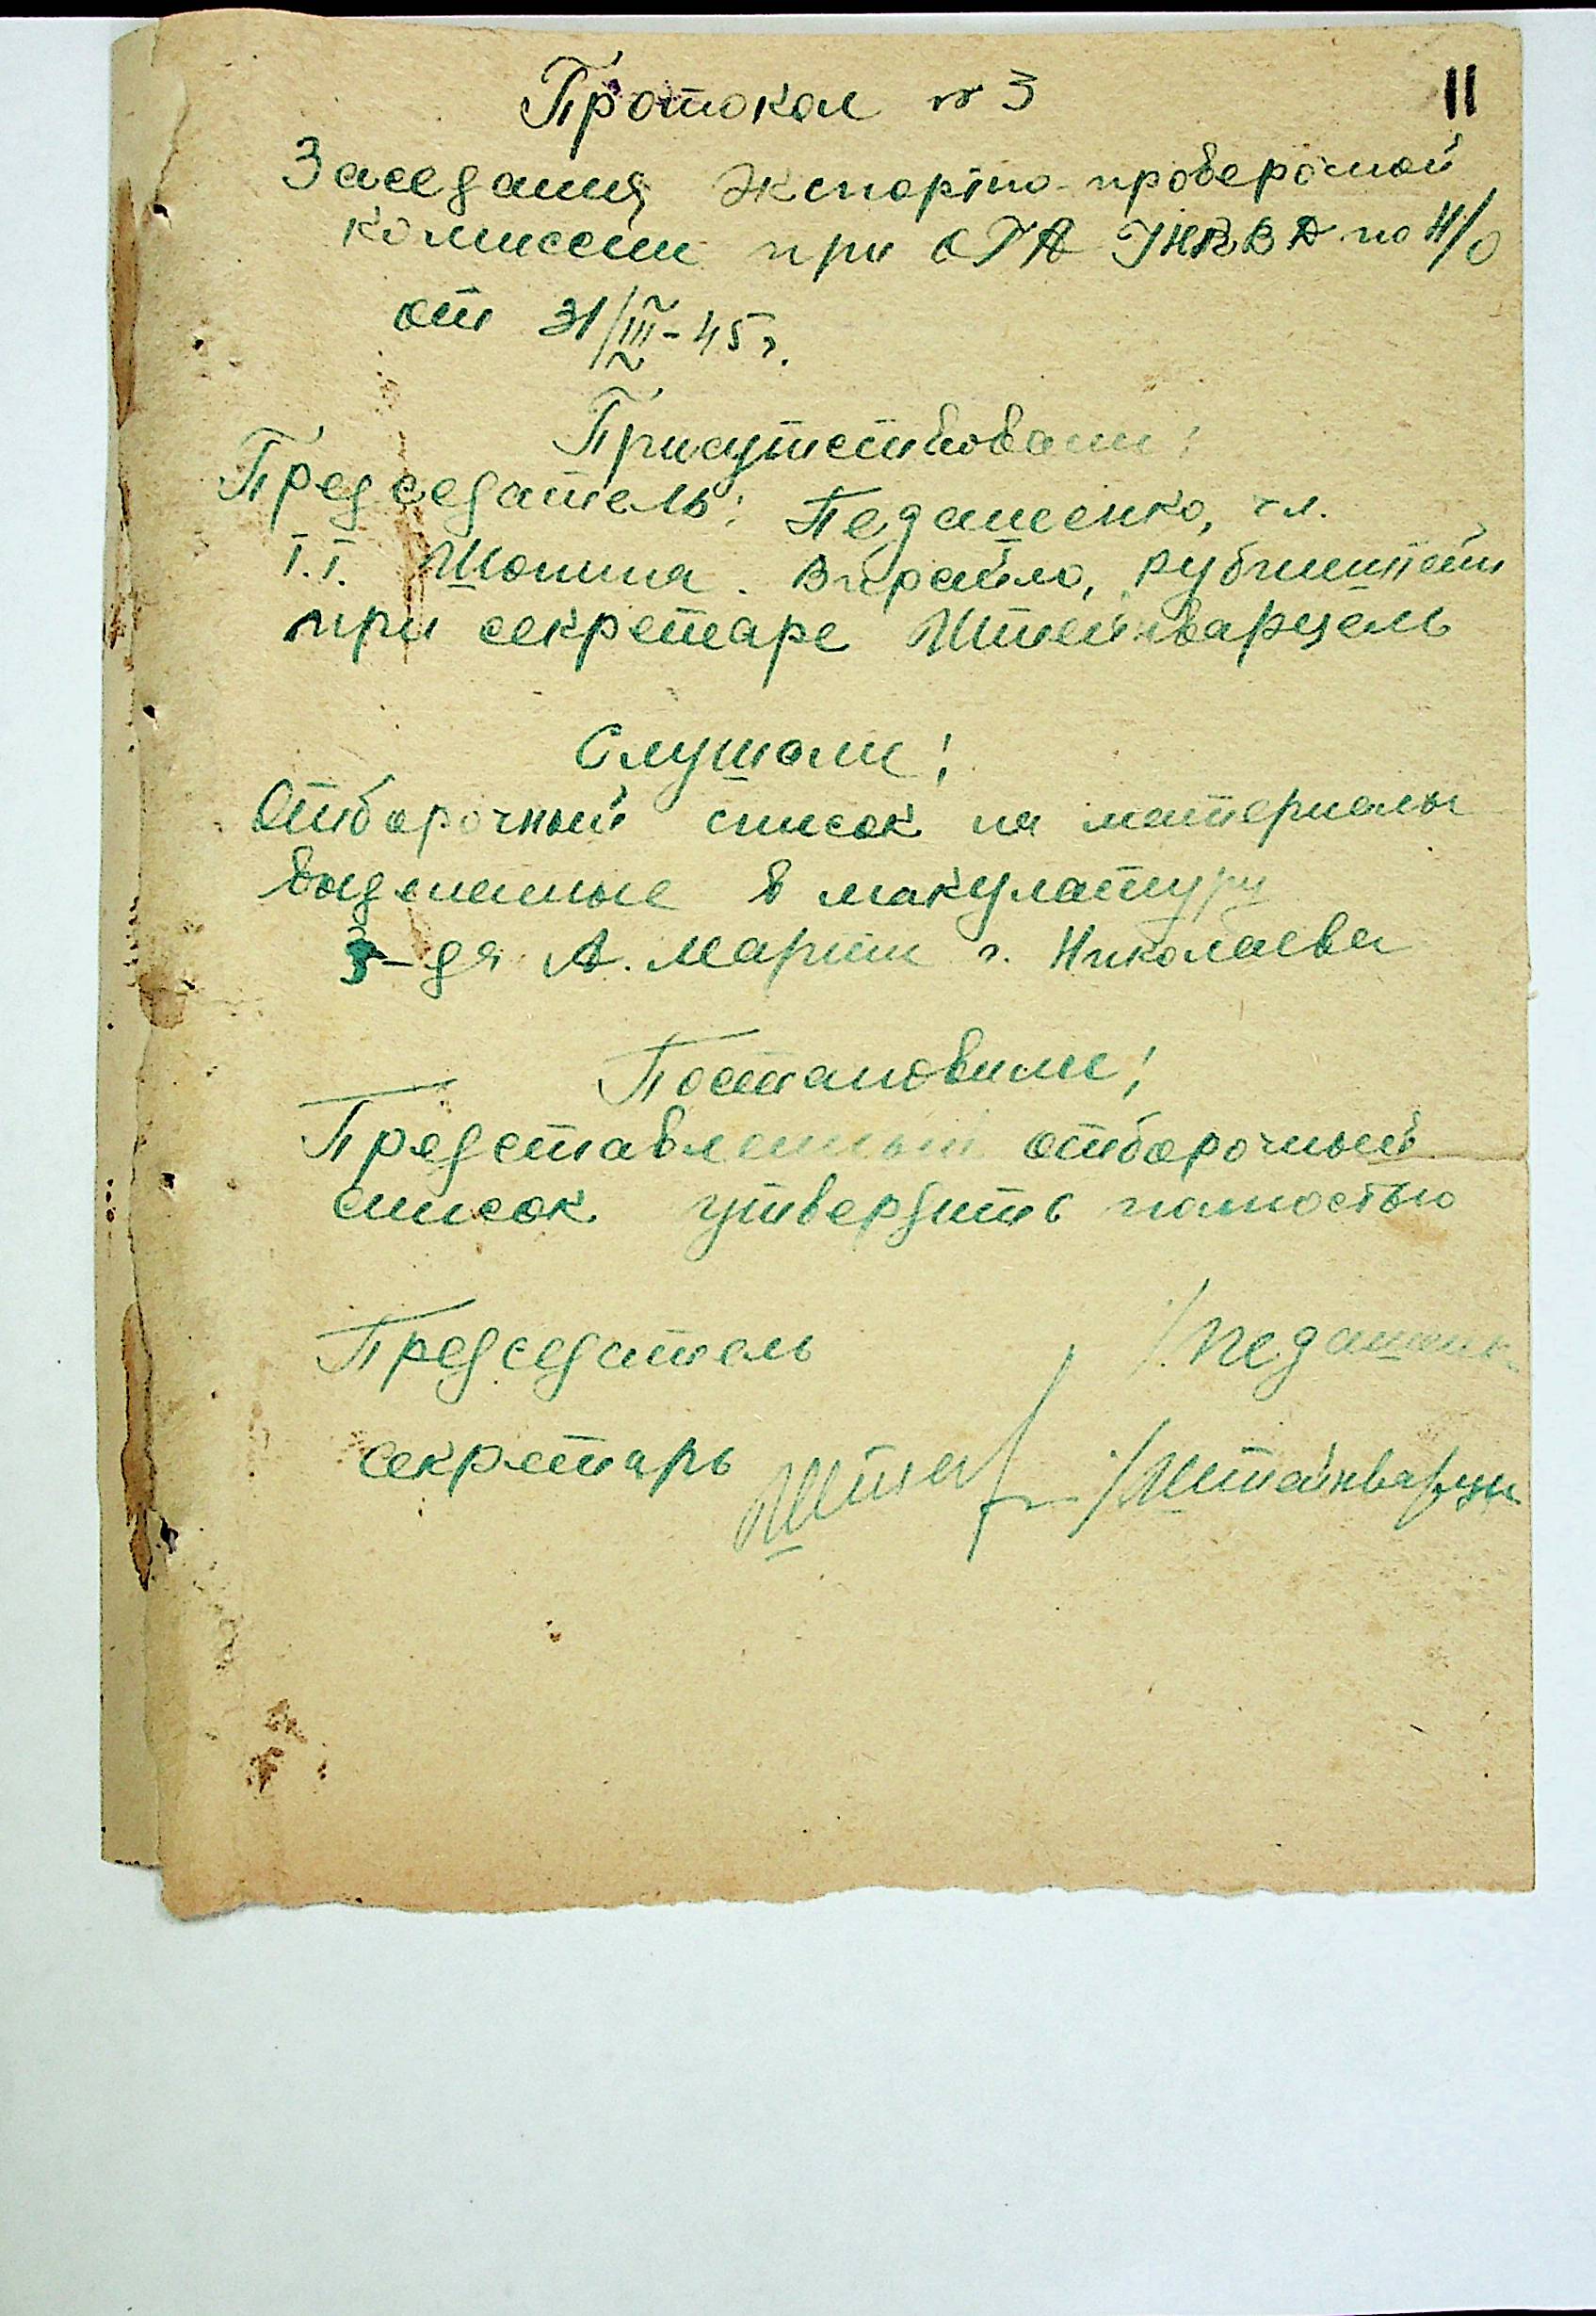 Протокол № 3
11
Заседания экспортно-проверочной
комиссии при ОГА УНКВД по Н/О
от 31/III-45 г.
Присутствовали:
Председатель: Педашенко, чл.
т.т. Шонина. Вирайло, Рубинштейн
при секретаре Штейнварцель
Слушали:
Отборочный список на материалы
выделенные в макулатуру
З-да А. Марти г. Николаева
Постановили:
Представленный отборочный
список утвердить полностью
Председатель /Педашенк
секретарь /Штейнварце